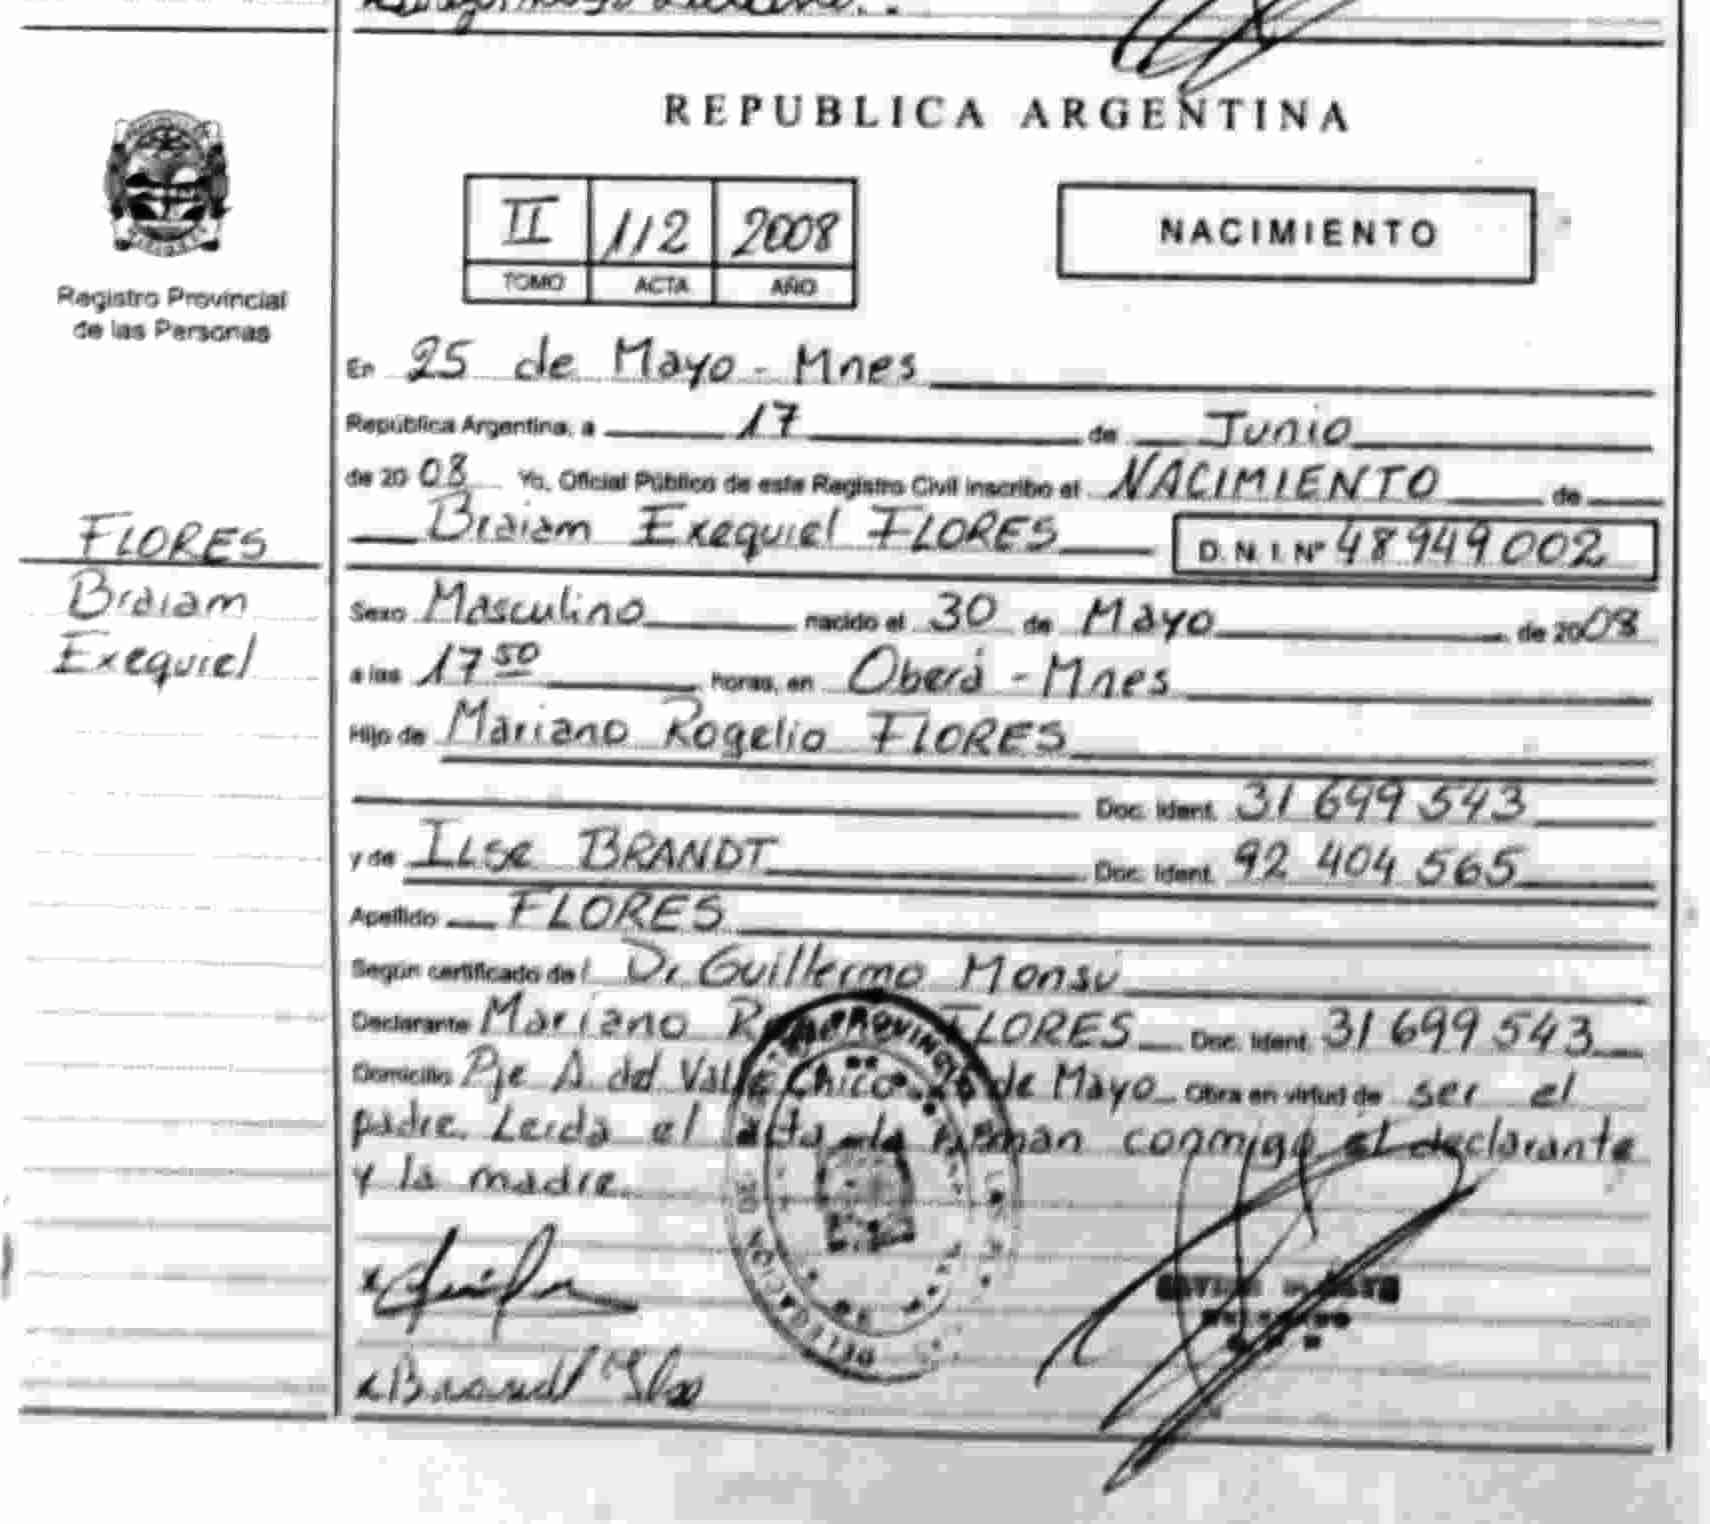 REPUBLICA ARGENTINA
II 112 2008
TOMO ACTA AÑO
NACIMIENTO
Registro Provincial
de las Personas
En 25 de Mayo - Mnes
República Argentina, a 17 de Junio
de 20 08 Yo, Oficial Público de este Registro Civil inscribo el NACIMIENTO de
Braiam Exequiel FLORES D. N. I. Nº 48949002
FLORES
Braiam
Exequiel
Sexo Masculino nacido el 30 de Mayo de 2008
a las 17 50 horas, en Oberá - Mnes
Hijo de Mariano Rogelio FLORES
Doc. Ident. 31 699 543
y de ILse BRANDT Doc. Ident. 92 404 565
Apellido FLORES
Según certificado del Dr Guillermo Monsú
Declarante Mariano FLORES Doc. Ident. 31 699 543
Domicilio Pje A. del Valle Chico 25 de Mayo Obra en virtud de ser el
padre. Leida el acta la firman conmigo el declarante
y la madre.
DELEGACION
Brandt Ilse